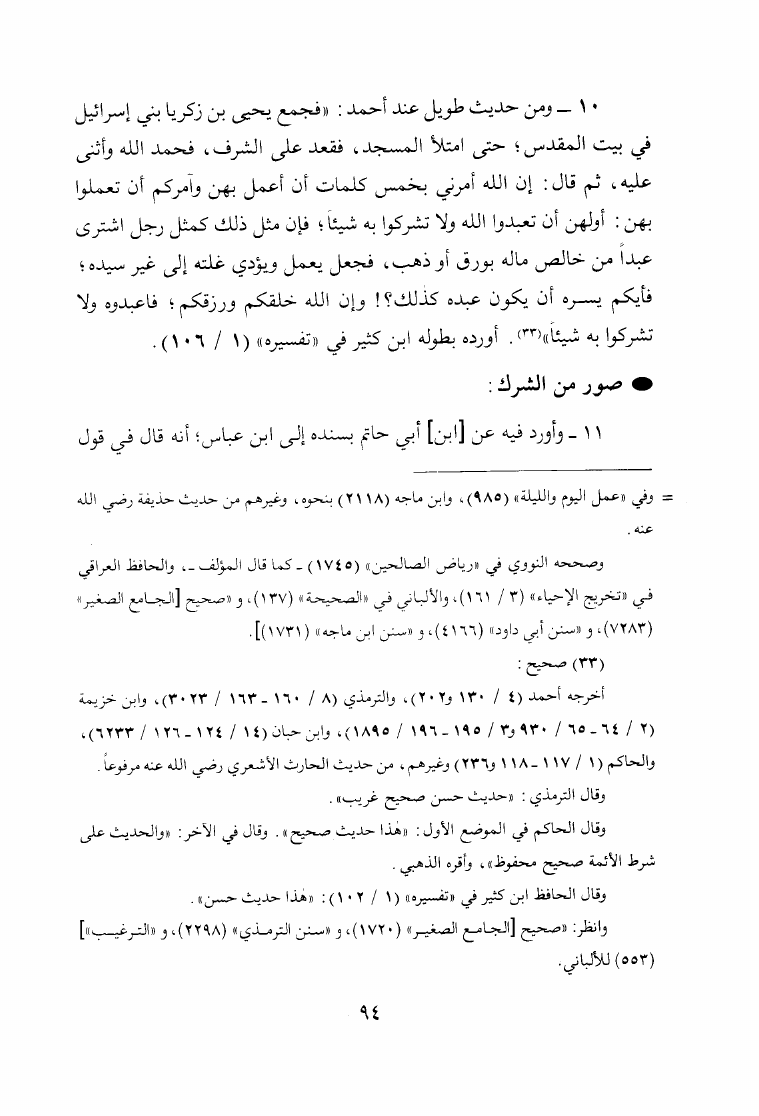 ١٠ ــ ومن حديث طويل عند أحمد: «فجمع يحيى بن زكريا بني إسرائيل
في بيت المقدس؛ حتى امتلأ المسجد، فقعد على الشرف، فحمد الله وأثنى
عليه، ثم قال: إن الله أمرني بخمس كلمات أن أعمل بهن وآمركم أن تعملوا
بهن: أولهن أن تعبدوا الله ولا تشركوا به شيئاً؛ فإن مثل ذلك كمثل رجل اشترى
عبداً من خالص ماله بورق أو ذهب، فجعل يعمل ويؤدي غلته إلى غير سيده؛
فأيكم يسره أن يكون عبده كذلك؟! وإن الله خلقكم ورزقكم؛ فاعبدوه ولا
تشركوا به شيئاً»(٣٣). أورده بطوله ابن كثير في «تفسيره» (١ / ١٠٦).
● صور من الشرك:
١١ ـ وأورد فيه عن [ابن] أبي حاتم بسنده إلى ابن عباس؛ أنه قال في قول
= وفي «عمل اليوم والليلة» (٩٨٥)، وابن ماجه (٢١١٨) بنحوه، وغيرهم من حديث حذيفة رضي الله
عنه.
وصححه النووي في «رياض الصالحين» (١٧٤٥) ـ كما قال المؤلف ـ، والحافظ العراقي
في «تخريج الإحياء» (٣ / ١٦١)، والألباني في «الصحيحة» (١٣٧)، و «صحيح [الجامع الصغير»
(٧٢٨٣)، و «سنن أبي داود» (٤١٦٦)، و «سنن ابن ماجه» (١٧٣١)].
(٣٣) صحيح:
أخرجه أحمد (٤ / ١٣٠ و٢٠٢)، والترمذي (٨ / ١٦٠ ـ ١٦٣ / ٣٠٢٣)، وابن خزيمة
(٢ / ٦٤ ـ ٦٥ / ٩٣٠ و٣ / ١٩٥ ـ ١٩٦ / ١٨٩٥)، وابن حبان (١٤ / ١٢٤ ـ ١٢٦ / ٦٢٣٣)،
والحاكم (١ / ١١٧ ـ ١١٨ و٢٣٦) وغيرهم، من حديث الحارث الأشعري رضي الله عنه مرفوعاً.
وقال الترمذي: «حديث حسن صحيح غريب».
وقال الحاكم في الموضع الأول: «هٰذا حديث صحيح». وقال في الآخر: «والحديث على
شرط الأئمة صحيح محفوظ»، وأقره الذهبي.
وقال الحافظ ابن كثير في «تفسيره» (١ / ١٠٢): «هٰذا حديث حسن».
وانظر: «صحيح [الجامع الصغير» (١٧٢٠)، و «سنن الترمذي» (٢٢٩٨)، و «الترغيب»]
(٥٥٣) للألباني.
٩٤